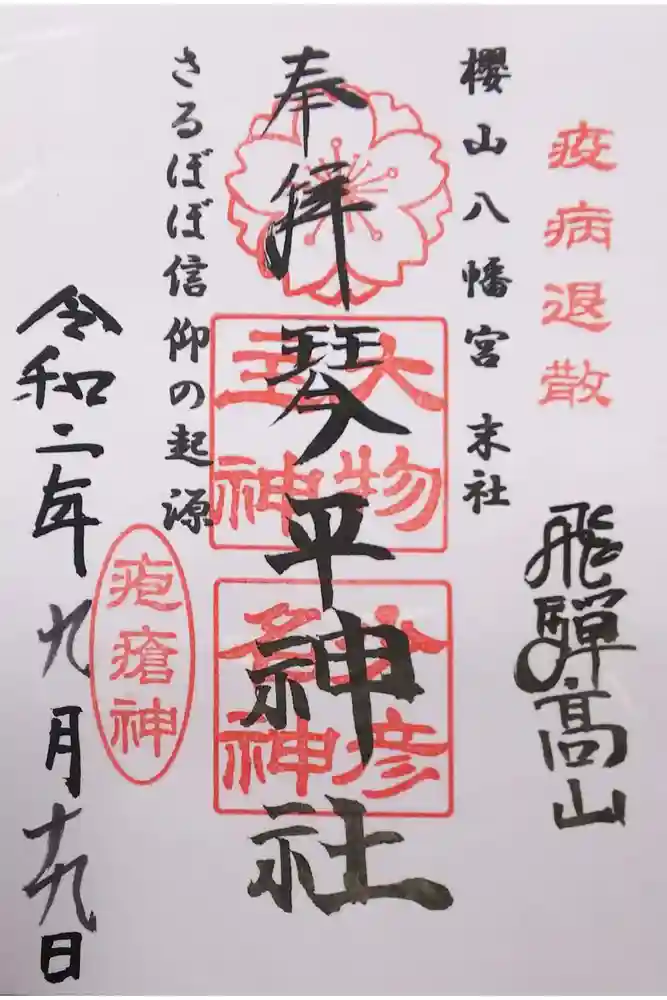 疫病退散
飛騨高山
櫻山八幡宮 末社
奉拝 琴平神社
大物
主神
少彦
名神
さるぼぼ信仰の起源
疱瘡神
令和二年九月十九日